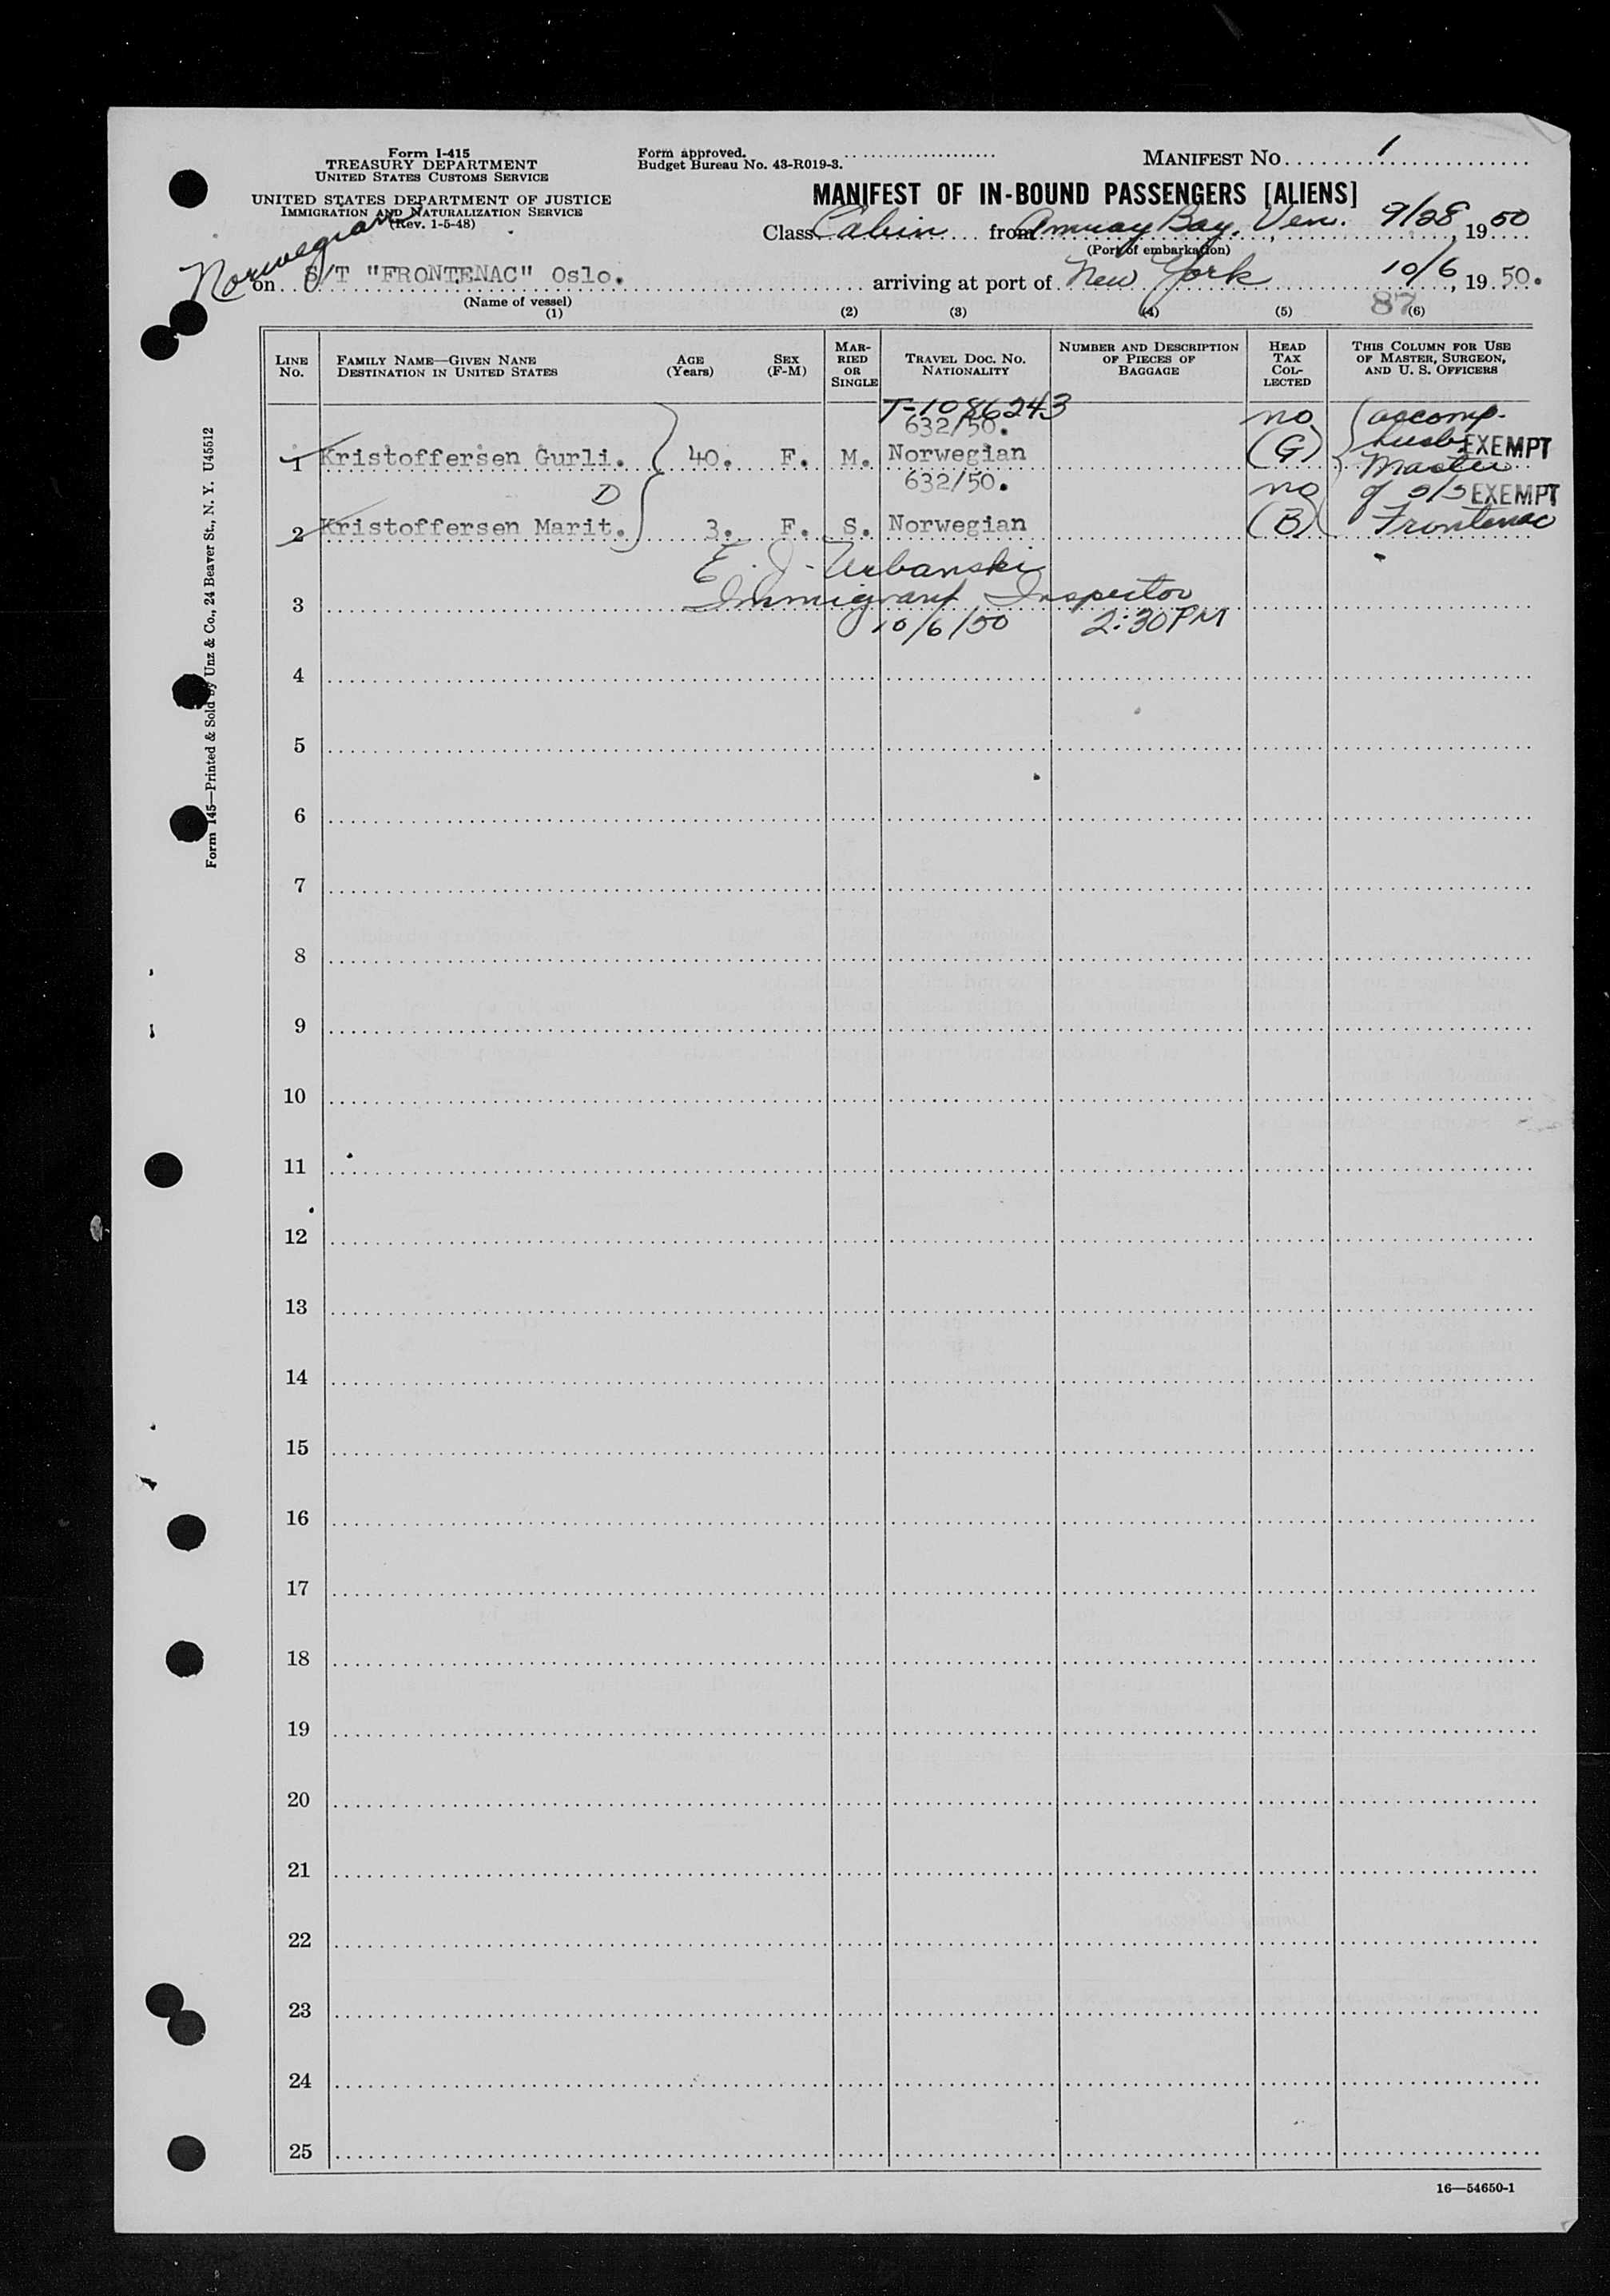 Form I-415
TREASURY DEPARTMENT
UNITED STATES CUSTOMS SERVICE
UNITED STATES DEPARTMENT OF JUSTICE
IMMIGRATION AND NATURALIZATION SERVICE
(Rev. 1-5-48)
Form approved.
Budget Bureau No. 43-R019-3.
MANIFEST NO. 1
MANIFEST OF IN-BOUND PASSENGERS [ALIENS]
Class Cabin from Amuay Bay, Ven. 9/28, 1950
(Port of embarkation)
Norwegian
on S/T "FRONTENAC" Oslo. arriving at port of New York 10/6, 1950.
(Name of vessel)
87
(1) (2) (3) (4) (5) (6)
LINE No. FAMILY NAME—GIVEN NANE DESTINATION IN UNITED STATES AGE (Years) SEX (F-M) MAR-RIED OR SINGLE TRAVEL DOC. NO. NATIONALITY NUMBER AND DESCRIPTION OF PIECES OF BAGGAGE HEAD TAX COL-LECTED THIS COLUMN FOR USE OF MASTER, SURGEON, AND U. S. OFFICERS
T-1086243
632/50. no accomp.
1 Kristoffersen Gurli. 40. F. M. Norwegian (G) husb EXEMPT
Master
D 632/50. no of S/S EXEMPT
2 Kristoffersen Marit. 3. F. S. Norwegian (B) Frontenac
E. J. Urbanski
3 Immigrant Inspector
10/6/50 2:30 PM
4
5
6
7
8
9
10
11
12
13
14
15
16
17
18
19
20
21
22
23
24
25
16—54650-1
Form 145—Printed & Sold by Unz & Co., 24 Beaver St., N. Y. U45512